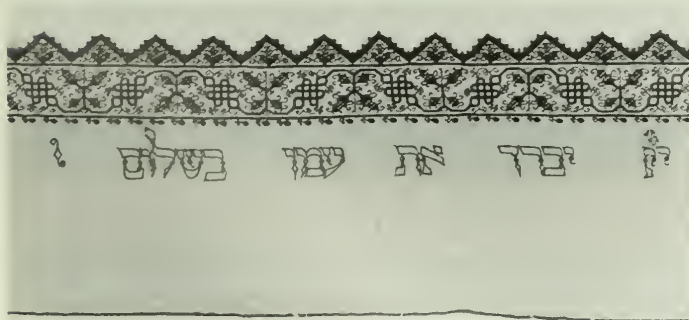 יברך את עמו בשלום